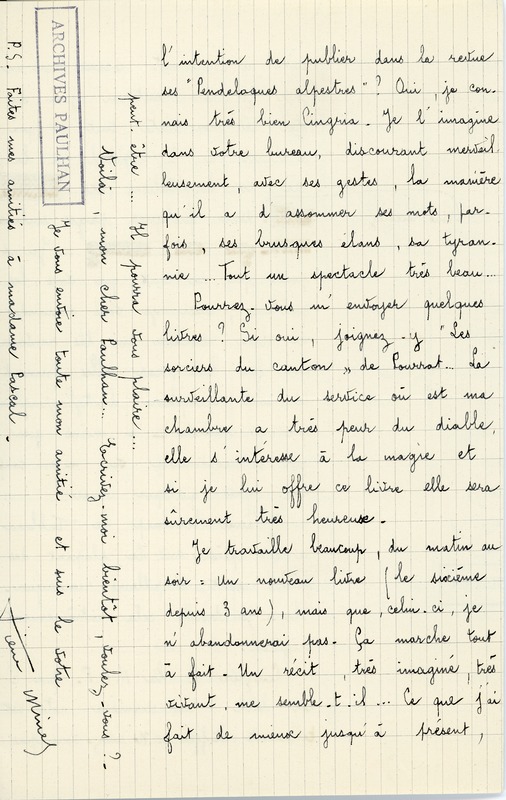 l'intention de publier dans la revue
ses "Pendeloques alpestres" ? Oui, je con-
nais très bien Cingria. Je l'imagine
dans votre bureau, discourant merveil
leusement, avec ses gestes, la manière
qu'il a d'assommer ses mots, par-
fois, ses brusques élans, sa tyran-
nie ... Tout un spectacle très beau...
Pourrez-vous m'envoyer quelques
livres ? Si oui, joignez-y "Les
sorciers du canton" de Pourrat... La
surveillante du service où est ma
chambre a très peur du diable,
elle s'intéresse à la magie et
si je lui offre ce livre elle sera
sûrement très heureuse.
Je travaille beaucoup, du matin au
soir : Un nouveau livre (le sixième
depuis 3 ans), mais que, celui-ci, je
n'abandonnerai pas. Ça marche tout
à fait. Un récit, très imaginé, très
vivant, me semble-t-il... Ce que j'ai
fait de mieux jusqu'à présent,
peut-être ... Il pourra vous plaire...
Voilà, mon cher Paulhan... Ecrivez-moi bientôt, voulez-vous ?
Je vous envoie toute mon amitié et suis le vôtre
P.S. Faites mes amitiés à madame Pascal.
ARCHIVES PAULHAN